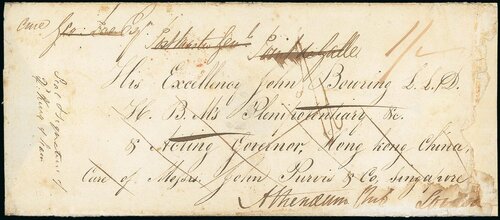 Care Geo: Lee Esqr. Post Master Genl. Point de Galle
1/2
His Excellency John Bowring L.L.D.
H. B. M's Plenipotentiary &c.
& Acting Governor, Hong Kong China,
Care of Messrs. John Purvis & Co, Singapore
Athenaeum Club
For Signature of